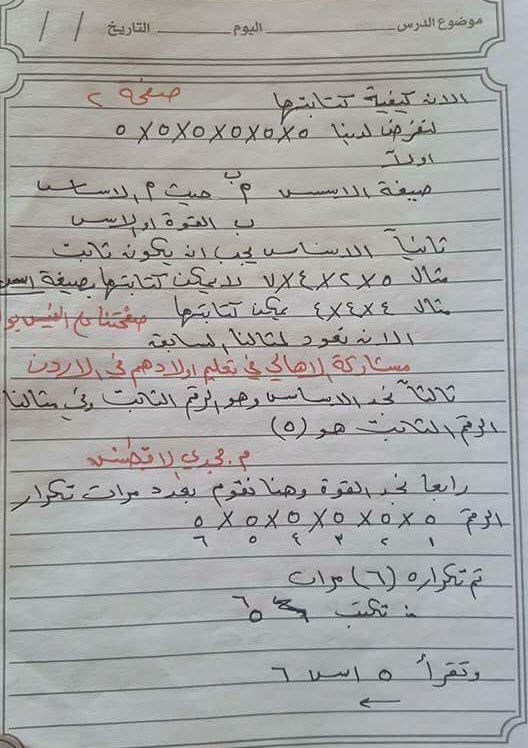 موضوع الدرس اليوم التاريخ / /
الان كيفية كتابتها صفحة ٢
لنفرض لدينا ٥×٥×٥×٥×٥×٥
اولاً
صيغة الاسس م ب حيث م الاساس
ب القوة او الاس
ثانياً الاساس يجب ان يكون ثابت
مثال ٥×٢×٤×٧ لا يمكن كتابتها بصيغة
مثال ٤×٤×٤ يمكن كتابتها صفحتنا على الفيس بو
الان نعود لمثالنا السابقة
مشاركة الاهالي في تعليم اولادهم في الاردن
ثالثاً نجد الاساس وهو الرقم الثابت وفي مثالنا
الرقم الثابت هو (٥)
م. مجدي
رابعا نجد القوة وهنا نقوم بعدد مرات تكرار
الرقم ٥×٥×٥×٥×٥×٥
١ ٢ ٣ ٤ ٥ ٦
تم تكرار ٥ (٦) مرات
تكتب ٥ ٦
وتقرأ ٥ اس ٦
←